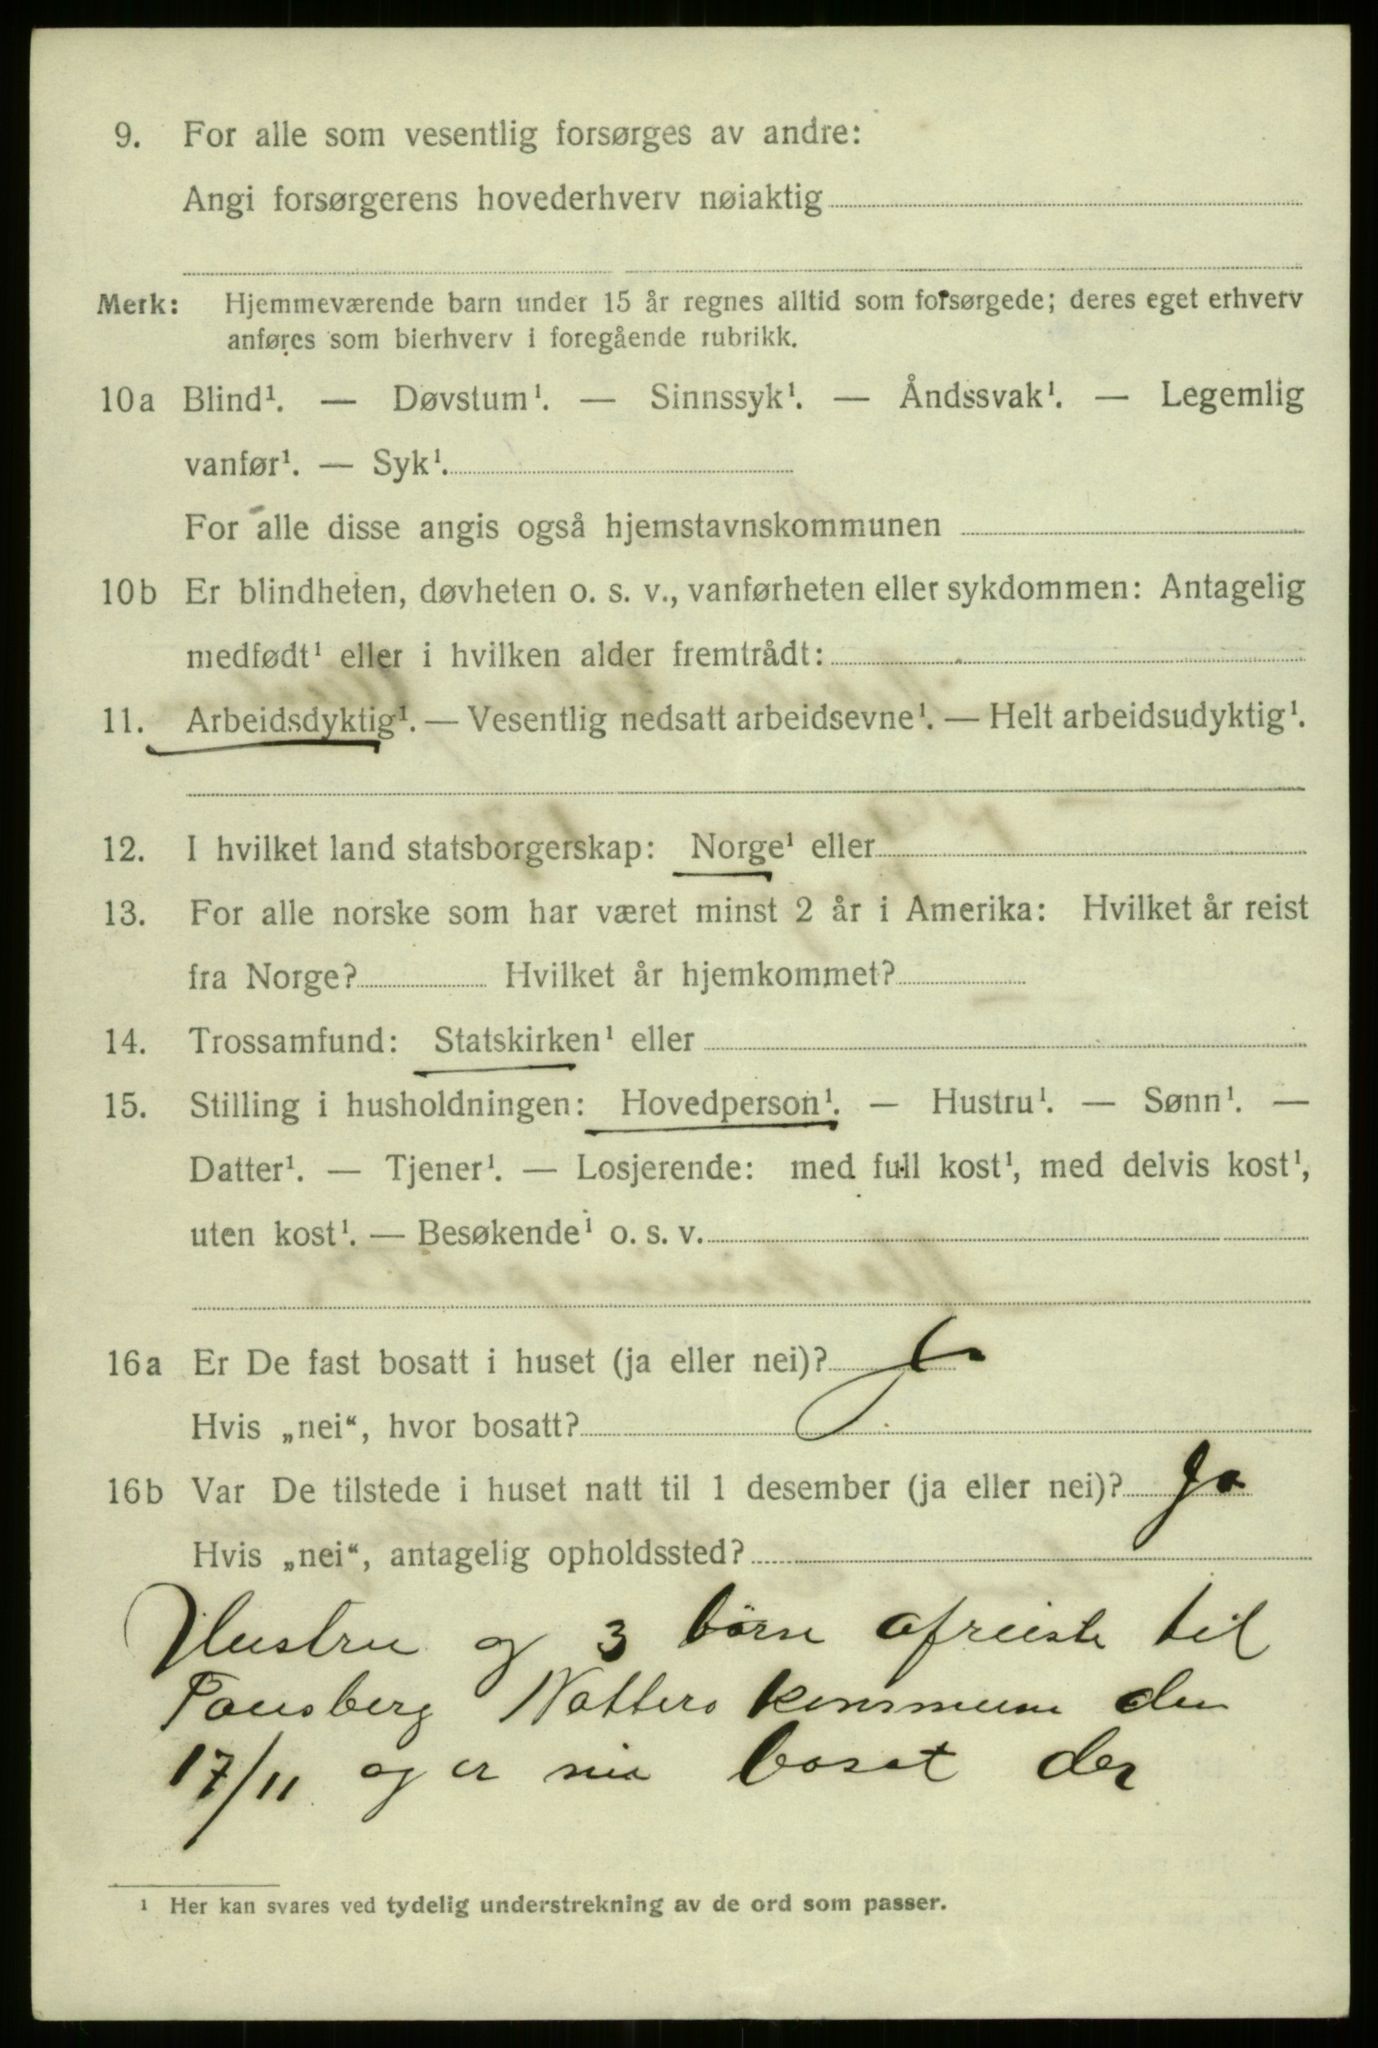 9. For alle som vesentlig forsørges av andre:
Angi forsørgerens hovederhverv nøiaktig
Merk: Hjemmeværende barn under 15 år regnes alltid som forsørgede; deres eget erhverv
anføres som bierhverv i foregående rubrikk.
10a Blind¹. — Døvstum¹. — Sinnssyk¹. — Åndssvak¹. — Legemlig
vanfør¹. — Syk¹.
For alle disse angis også hjemstavnskommunen
10b Er blindheten, døvheten o. s. v., vanførheten eller sykdommen: Antagelig
medfødt¹ eller i hvilken alder fremtrådt:
11. Arbeidsdyktig¹. — Vesentlig nedsatt arbeidsevne¹. — Helt arbeidsudyktig¹.
12. I hvilket land statsborgerskap: Norge¹ eller
13. For alle norske som har været minst 2 år i Amerika: Hvilket år reist
fra Norge? Hvilket år hjemkommet?
14. Trossamfund: Statskirken¹ eller
15. Stilling i husholdningen: Hovedperson¹. — Hustru¹. — Sønn¹. —
Datter¹. — Tjener¹. — Losjerende: med full kost¹, med delvis kost¹,
uten kost¹. — Besøkende¹ o. s. v.
16a Er De fast bosatt i huset (ja eller nei)? Ja
Hvis „nei“, hvor bosatt?
16b Var De tilstede i huset natt til 1 desember (ja eller nei)? Ja
Hvis „nei“, antagelig opholdssted?
Hustru og 3 börn afreiste til
kommune den
17/11 og er bosat der
¹ Her kan svares ved tydelig understrekning av de ord som passer.